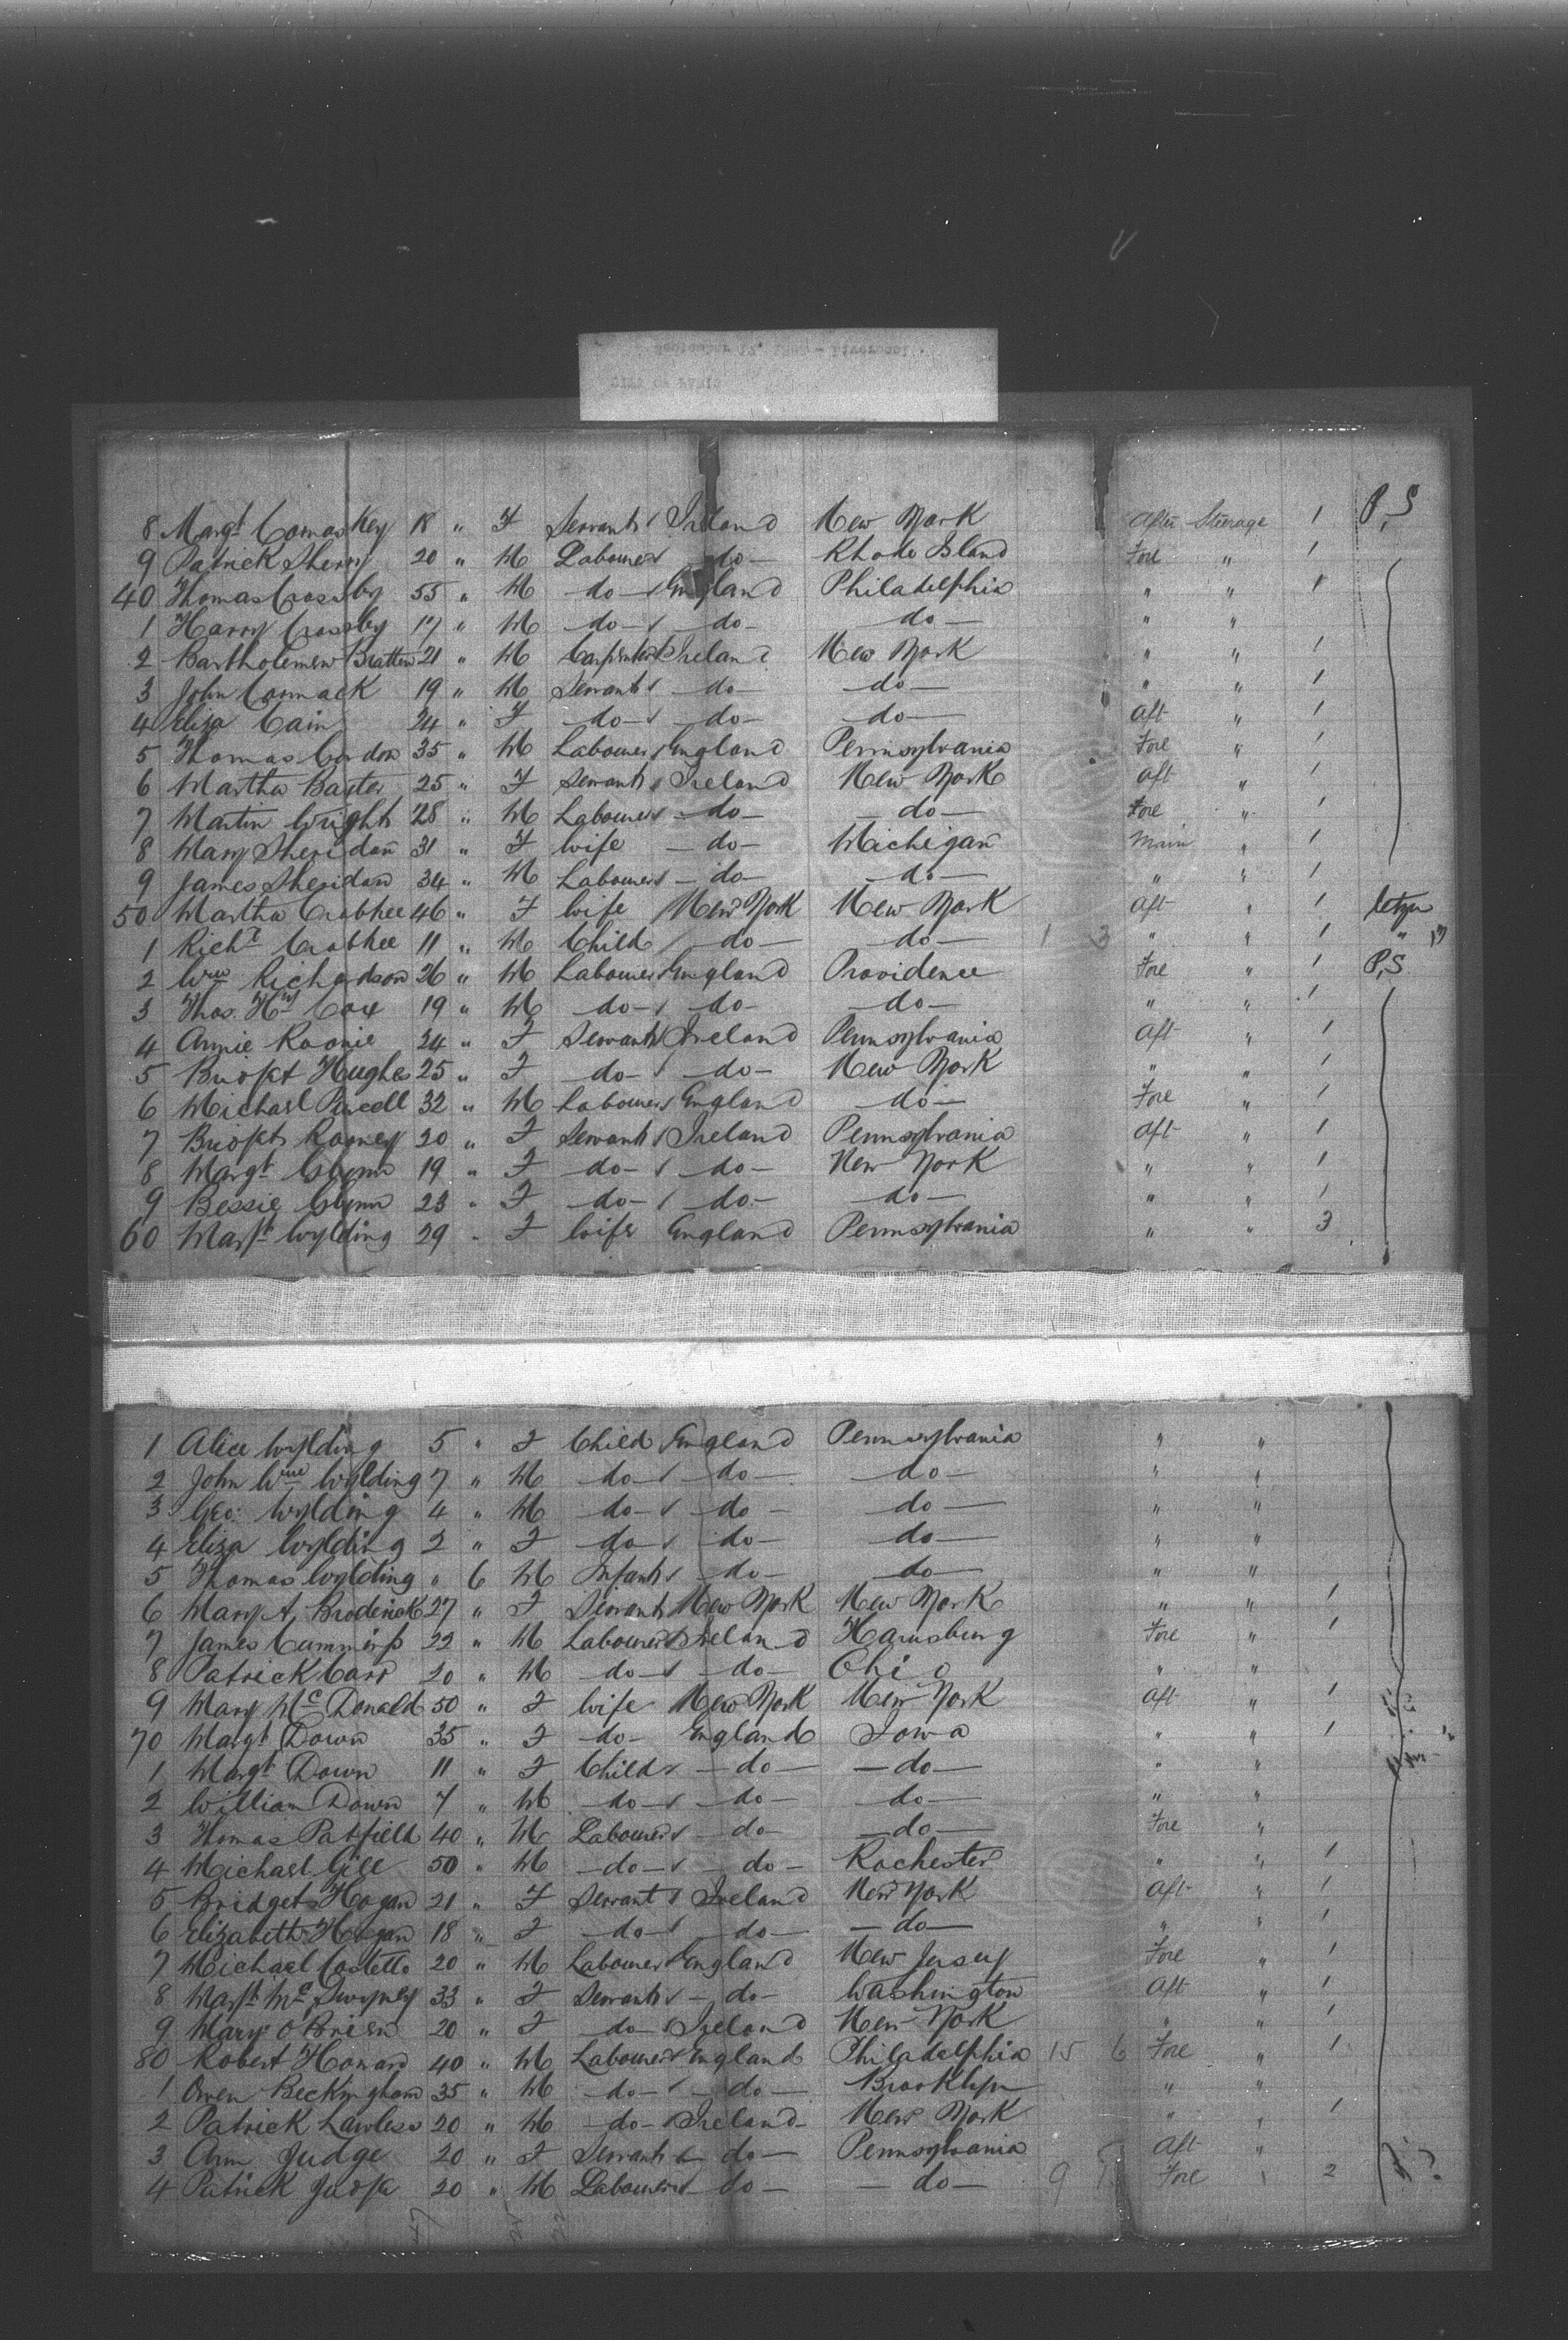 8 Margt Comaskey 18 " F Servant Ireland New York After Steerage 1 P,S
9 Patrick Sherry 20 " M Labourer -do- Rhode Island Fore " 1
40 Thomas Crossby 55 " M -do- England Philadelphia " " 1
1 Harry Crossby 17 " M -do- -do- -do- " "
2 Bartholemew Bratten 21 " M Carpenter Ireland New York " " 1
3 John Cormack 19 " M Servant -do- -do- " " 1
4 Eliza Cain 24 " F -do- -do- -do- Aft " 1
5 Thomas Condon 35 " M Labourer England Pennsylvania Fore " 1
6 Martha Baxter 25 " F Servant Ireland New York Aft " 1
7 Martin Wright 28 " M Labourer -do- -do- Fore " 1
8 Mary Sheridan 31 " F Wife -do- Michigan Main " 1
9 James Sheridan 34 " M Labourer -do- -do- " " 1
50 Martha Crabhee 46 " F Wife New York New York Aft " 1
1 Richd Crabhee 11 " M Child -do- -do- 1 3 " " 1 "
2 Wm Richardson 26 " M Labourer England Providence Fore " 1 P,S
3 Thos. Hy Cox 19 " M -do- -do- -do- " " 1
4 Annie Roonie 24 " F Servant Ireland Pennsylvania Aft " 1
5 Bridget Hughes 25 " F -do- -do- New York " " 1
6 Michael Purcell 32 " M Labourer England -do- Fore " 1
7 Bridget Rooney 20 " F Servant Ireland Pennsylvania Aft " 1
8 Margt Glynn 19 " F -do- -do- New York " " 1
9 Bessie Glynn 23 " F -do- -do- -do- " " 1
60 Margt Wylding 29 " F Wife England Pennsylvania " " 3
1 Alice Wylding 5 " F Child England Pennsylvania " "
2 John Wm Wylding 7 " M -do- -do- -do- " "
3 Geo: Wylding 4 " M -do- -do- -do- " "
4 Eliza Wylding 2 " F -do- -do- -do- " "
5 Thomas Wylding " 6 M Infant -do- -do- " "
6 Mary A, Broderick 27 " F Servant New York New York " " 1
7 James Cummings 22 " M Labourer Ireland Harrisburg Fore " 1
8 Patrick Carr 20 " M -do- -do- Ohio " " 1
9 Mary McDonald 50 " F Wife New York New York Aft " 1
70 Margt Down 35 " F -do- England Iowa " " 1
1 Margt Down 11 " F Child -do- -do- " "
2 William Down 7 " M -do- -do- -do- " "
3 Thomas Patfield 40 " M Labourer -do- -do- Fore "
4 Michael Gill 50 " M -do- -do- Rochester " " 1
5 Bridget Hogan 21 " F Servant Ireland New York Aft " 1
6 Elizabeth Hogan 18 " F -do- -do- -do- " " 1
7 Michael Costello 20 " M Labourer England New Jersey Fore " 1
8 Margt McSwyney 33 " F Servant -do- Washington Aft " 1
9 Mary O'Brien 20 " F -do- Ireland New York " " 1
80 Robert Howard 40 " M Labourer England Philadelphia 15 6 Fore " 1
1 Owen Beckingham 35 " M -do- -do- Brooklyn " "
2 Patrick Lawless 20 " M -do- Ireland New York " " 1
3 Ann Judge 20 " F Servant -do- Pennsylvania Aft "
4 Patrick Judge 20 " M Labourer -do- -do- 9 Fore " 2